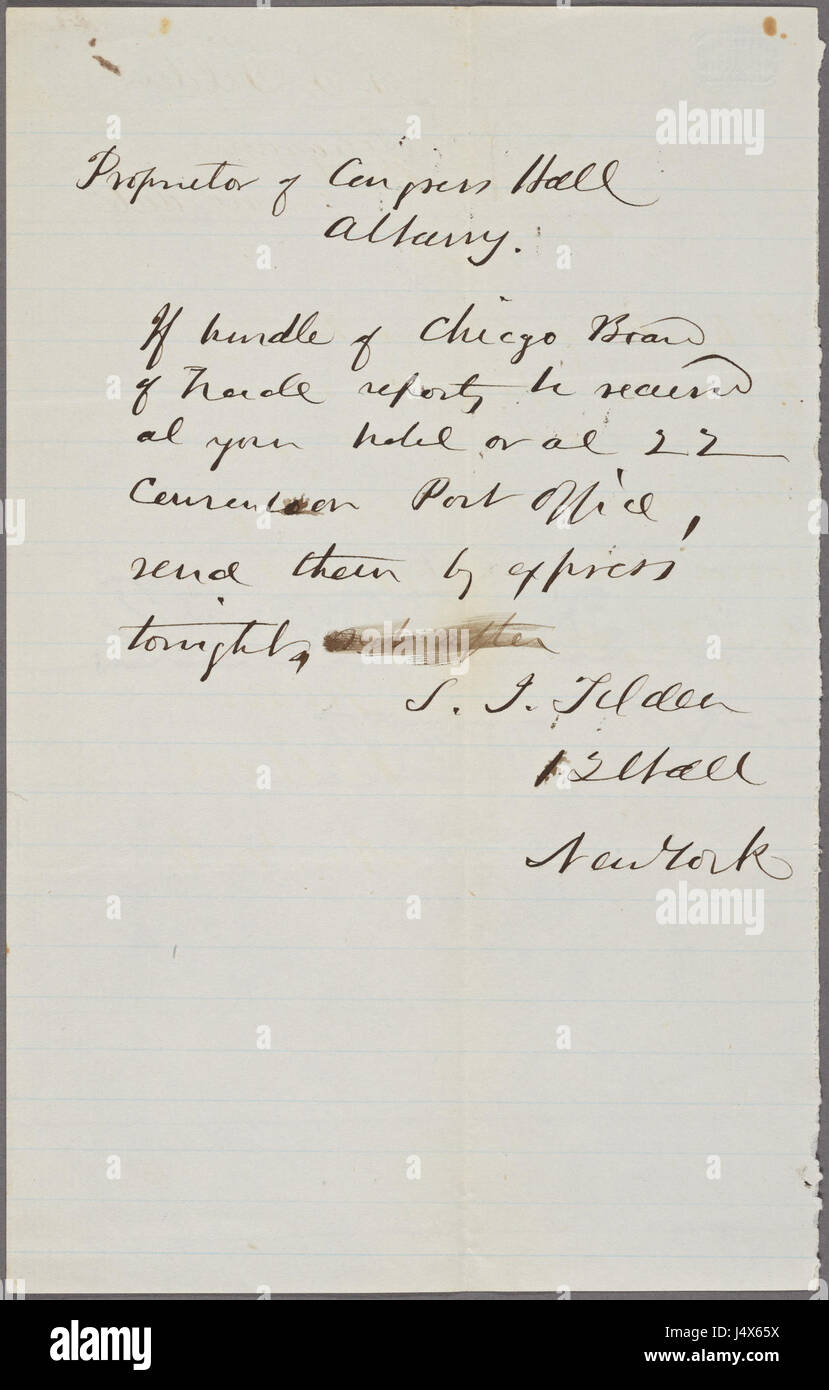 Proprietor of Congress Hall
Albany.
If bundle of Chicago Board
of Trade reports, be received
at your hotel or at
Convention Post Office,
send them by express
tonight,
S. J. Tilden
12 Wall
New York
alamy stock photo
J4X65X
www.alamy.com